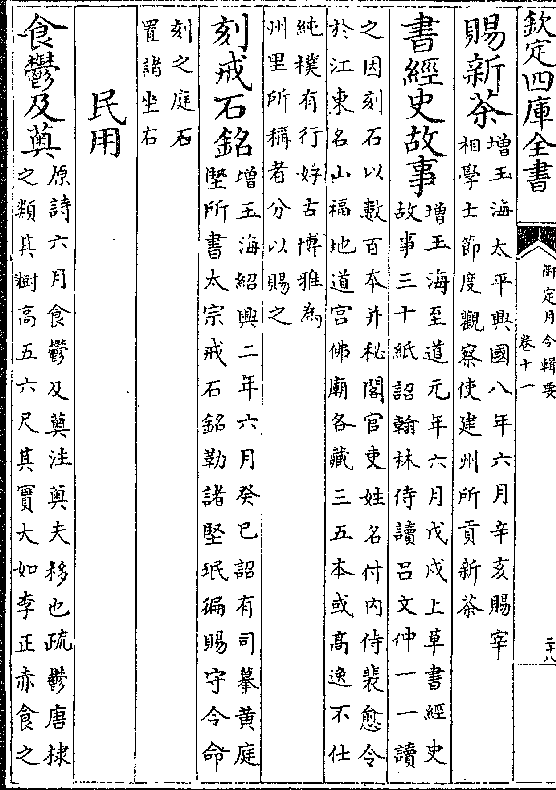 欽定四庫全書
御定月令輯要
卷十一
賜新茶
增玉海太平興國八年六月辛亥賜宰
相學士節度觀察使建州所貢新茶
書經史故事
增玉海至道元年六月戊戌上草書經史
故事三十紙詔翰林侍讀呂文仲一一讀
之因刻石以數百本并秘閣官吏姓名付內侍裴愈令
於江東名山福地道宮佛廟各藏三五本或高逸不仕
純樸有行好古博雅為
州里所稱者分以賜之
刻戒石銘
增玉海紹興二年六月癸巳詔有司摹黃庭
堅所書太宗戒石銘勒諸堅珉徧賜守令命
刻之庭石
置諸坐右
民用
食鬱及薁
原詩六月食鬱及薁注薁夫移也疏鬱唐棣
之類其樹高五六尺其實大如李正赤食之